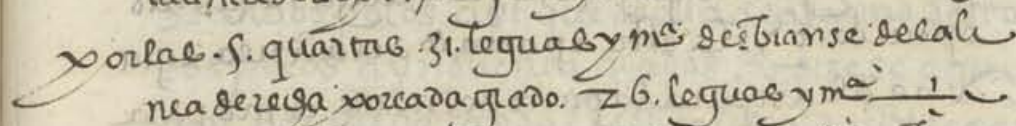 por las .5. quartas .31. leguas y mª desbianse de la li
nea derecha por cada grado. 26. leguas y mª 1